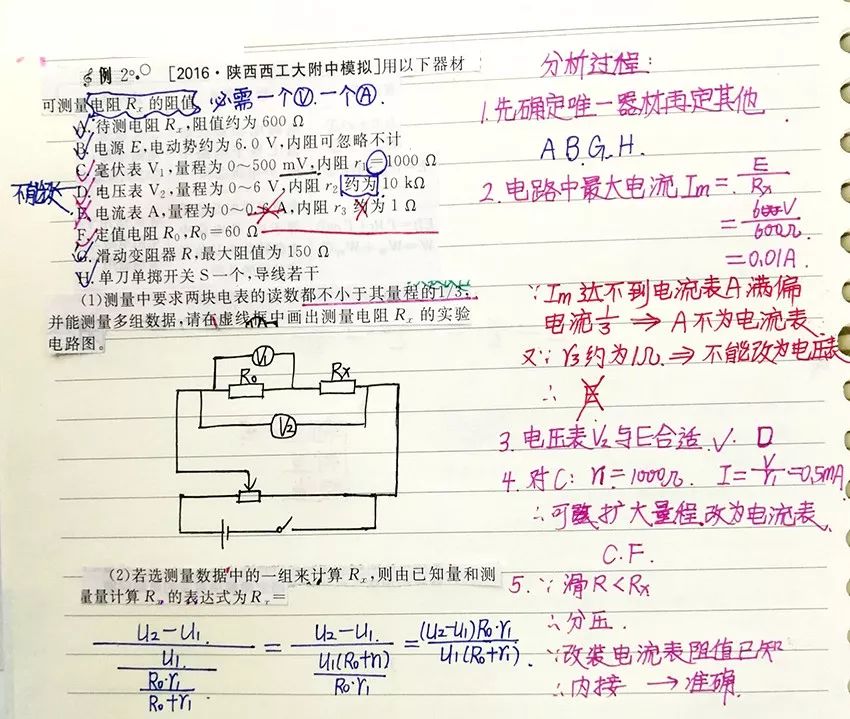 例2 [2016·陕西西工大附中模拟]用以下器材
可测量电阻 Rx 的阻值 必需一个Ⓥ一个Ⓐ.
A.待测电阻 Rx,阻值约为 600 Ω
B.电源 E,电动势约为 6.0 V,内阻可忽略不计
C.毫伏表 V1,量程为 0~500 mV,内阻 r1=1000 Ω
D.电压表 V2,量程为 0~6 V,内阻 r2 约为 10 kΩ
E.电流表 A,量程为 0~0.6 A,内阻 r3 约为 1 Ω
F.定值电阻 R0,R0=60 Ω
G.滑动变阻器 R,最大阻值为 150 Ω
H.单刀单掷开关 S 一个,导线若干
(1)测量中要求两块电表的读数都不小于其量程的1/3,
并能测量多组数据,请在虚线框中画出测量电阻 Rx 的实验
电路图。
V1
R0 Rx
V2
(2)若选测量数据中的一组来计算 Rx,则由已知量和测
量量计算 Rx 的表达式为 Rx=
(U2-U1)/(U1/(R0·r1/(R0+r1))) = (U2-U1)/(U1(R0+r1)/(R0·r1)) = (U2-U1)R0·r1/(U1(R0+r1)).
分析过程:
1.先确定唯一器材再定其他
A B G H.
2.电路中最大电流 Im=E/Rx
=6V/600Ω
=0.01A
∵Im达不到电流表A满偏
电流1/3 ⇒ A不为电流表
又∵r3约为1Ω ⇒ 不能改为电压表
∴ E
3.电压表V2与E合适 ✓. D
4.对C: r1=1000Ω. I=V/r1=0.5mA
∴可 扩大量程,改为电流表
C.F.
5.∵滑R<Rx
∴分压.
∵改装电流表阻值已知
∴内接 → 准确.